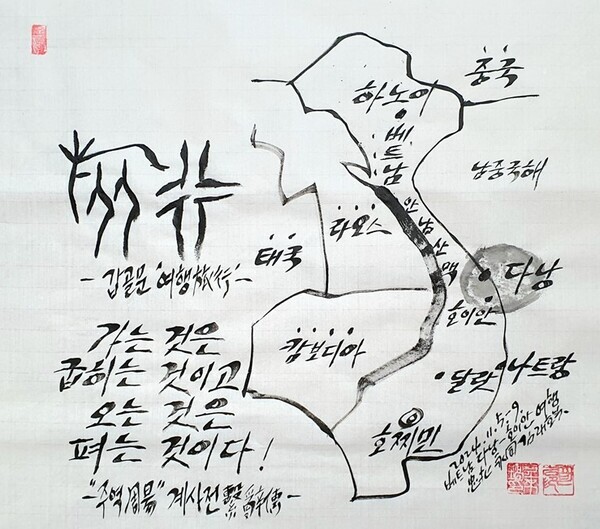 중국
하노이
베트남
남중국해
안남산맥
라오스
태국
다낭
호이안
캄보디아
달랏
나트랑
호찌민
- 갑골문 '여행旅行' -
가는 것은
굽히는 것이고
오는 것은
펴는 것이다!
- "주역周易" 계사전繫辭傳 -
2024. 11. 5. - 9.
베트남 다낭-호이안 여행